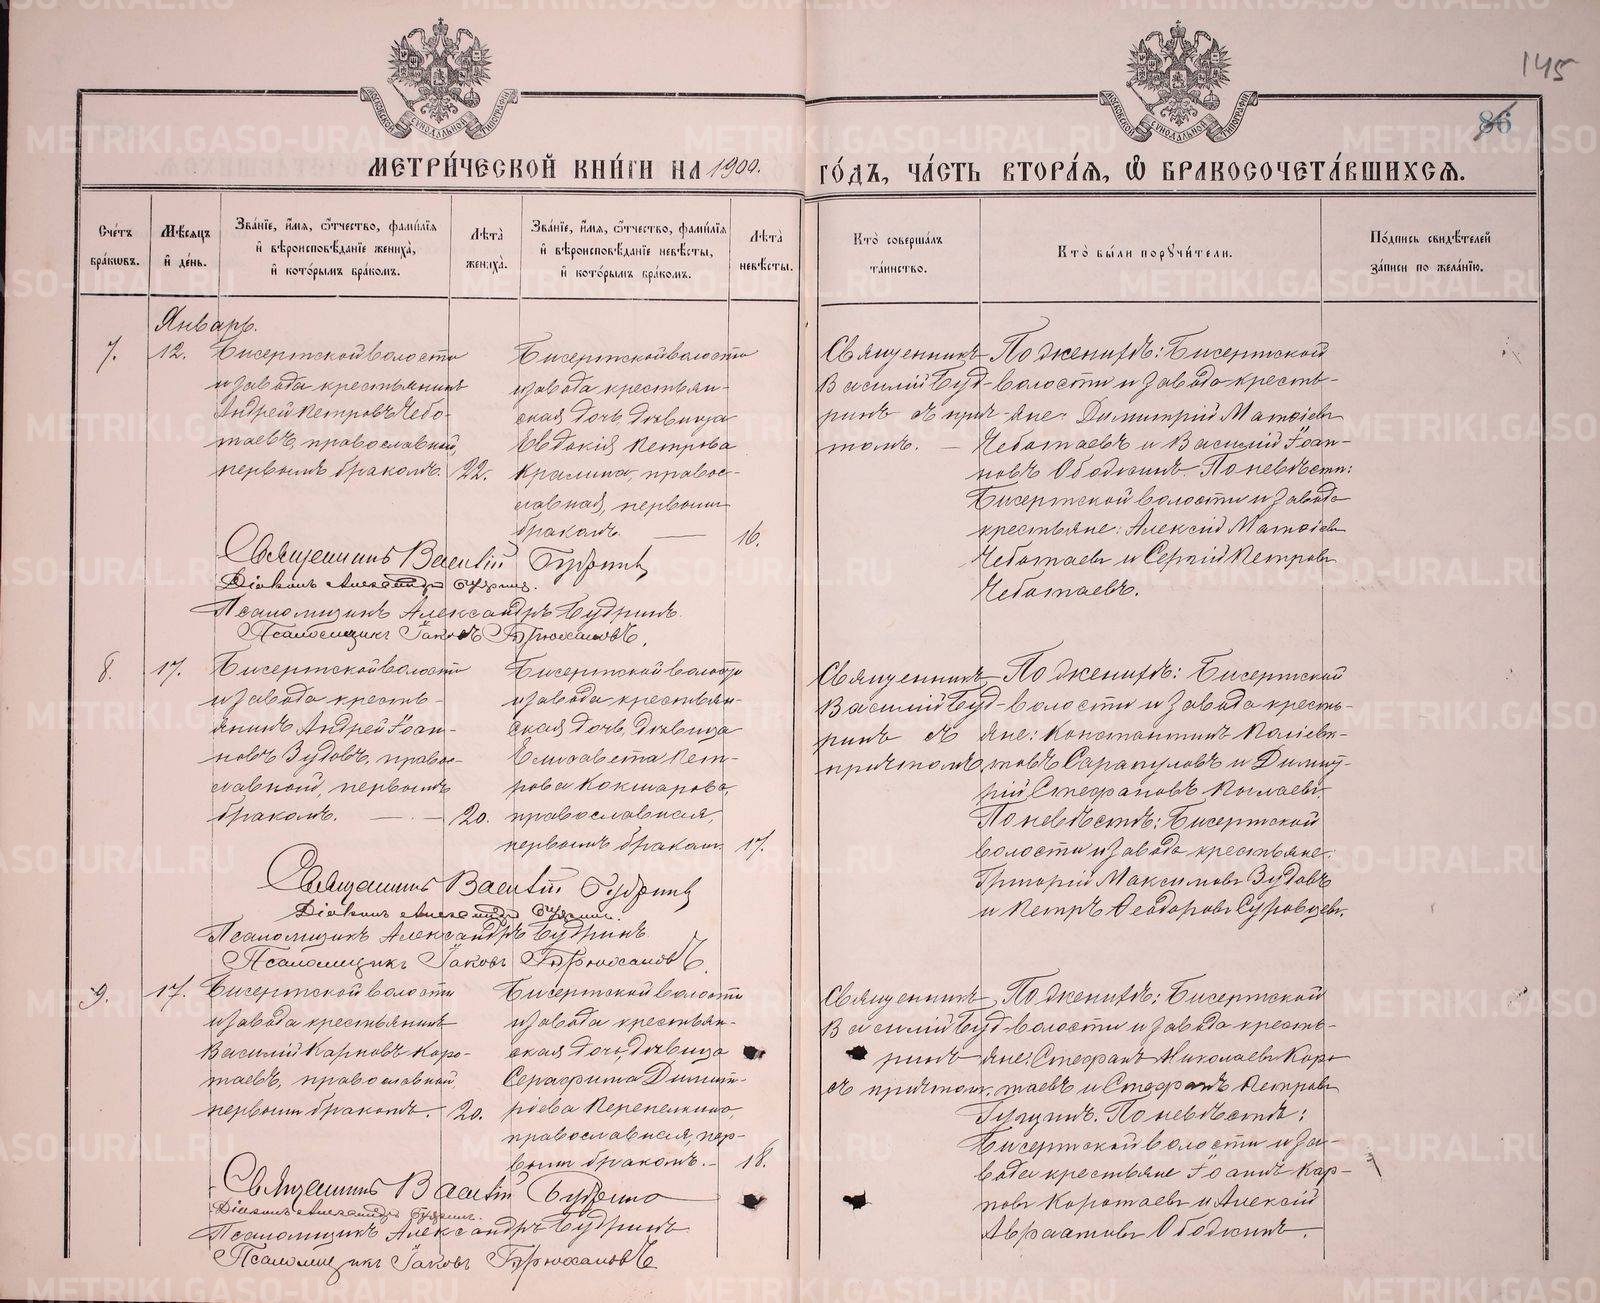 145
86
МЕТРИ́ЧЕСКОЙ КНИ́ГИ НА 1900. ГО́ДЪ, ЧА́СТЬ ВТОРА́Я, Ѡ БРАКОСОЧЕТА́ВШИХСЯ.
Сче́тъ бра́ковъ.
Мѣ́сяцъ и де́нь.
Зва́нїе, и́мя, ѻ́тчество, фами́лїя и вѣроисповѣ́данїе жениха̀, и кото́рымъ бра́комъ.
Лѣта̀ жениха̀.
Зва́нїе, и́мя, ѻ́тчество, фами́лїя и вѣроисповѣ́данїе невѣ́сты, и кото́рымъ бра́комъ.
Лѣта̀ невѣ́сты.
Кто̀ соверша́лъ та́инство.
Кто̀ бы́ли порꙋчи́тели.
По́дпись свидѣ́телей за́писи по жела́нїю.
Январь.
7.
12.
Бисертской волости
и завода крестьянинъ
Андрей Петровъ Чебо-
таевъ, православный,
первымъ бракомъ.
22.
Бисертской волости
и завода крестьян-
ская дочь, дѣвица
Евдокія Петрова
Кралина, правос-
лавная, первымъ
бракомъ.
16.
Священникъ
Василій Буд-
ринъ съ прич-
томъ.
По женихѣ: Бисертской
волости и завода кресть-
яне: Димитрій Матѳіевъ
Чеботаевъ и Василій Іоан-
новъ Ободкинъ. По невѣсти:
Бисертской волости и завода
крестьяне: Алексій Матѳіевъ
Чеботаевъ и Сергій Петровъ
Чеботаевъ.
Священникъ Василій Будринъ
Діаконъ Александръ Будринъ.
Псаломщикъ Александръ Будринъ.
Псаломщикъ Іаковъ Брюхановъ.
8.
17.
Бисертской волости
и завода кресть-
янинъ Андрей Іоан-
новъ Зудовъ, правос-
лавный, первымъ
бракомъ.
20.
Бисертской волости
и завода крестьян-
ская дочь, дѣвица
Елисавета Пет-
рова Кокшарова,
православная,
первымъ бракомъ.
17.
Священникъ
Василій Буд-
ринъ съ
причтомъ
По женихѣ: Бисертской
волости и завода кресть-
яне: Константинъ
Сарапуловъ и Димит-
рій Стефановъ
По невѣстѣ: Бисертской
волости и завода крестьяне:
Григорій Максимовъ Зудовъ
и Петръ Ѳеодоровъ Суровцевъ.
Священникъ Василій Будринъ
Діаконъ Александръ Будринъ.
Псаломщикъ Александръ Будринъ.
Псаломщикъ Іаковъ Брюхановъ.
9.
17.
Бисертской волости
и завода крестьянинъ
Василій Карповъ Коро-
таевъ, православный,
первымъ бракомъ.
20.
Бисертской волости
и завода крестьян-
ская дочь, дѣвица
Серафима Димит-
ріева Перепелкина,
православная, пер-
вымъ бракомъ.
18.
Священникъ
Василій Буд-
ринъ
съ причтомъ.
По женихѣ: Бисертской
волости и завода кресть-
яне: Стефанъ Николаевъ Коро-
таевъ и Стефанъ Петровъ
По невѣстѣ:
Бисертской волости и за-
вода крестьяне Іоаннъ Кар-
повъ Коротаевъ и Алексій
Авраамовъ Ободкинъ.
Священникъ Василій Будринъ
Діаконъ Александръ Будринъ.
Псаломщикъ Александръ Будринъ
Псаломщикъ Іаковъ Брюхановъ
METRIKI.GASO-URAL.RU